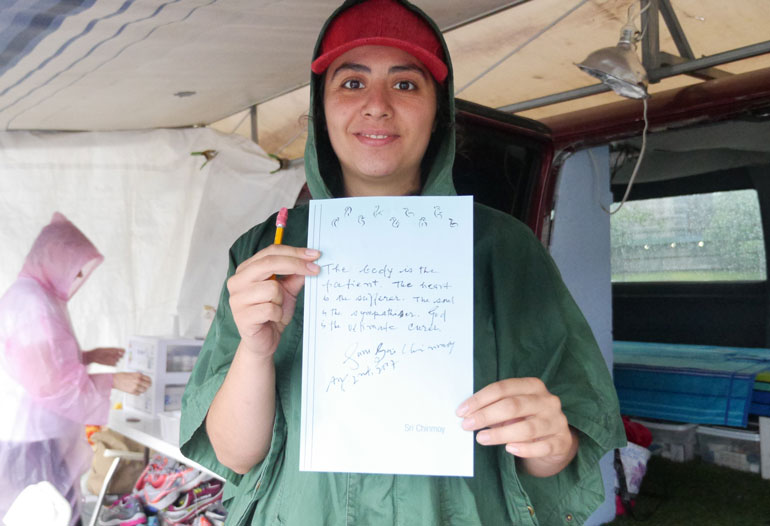 The body is the
patient. The heart
is the sufferer. The soul
is the sympathiser. God
is the ultimate curer.
Sri Chinmoy